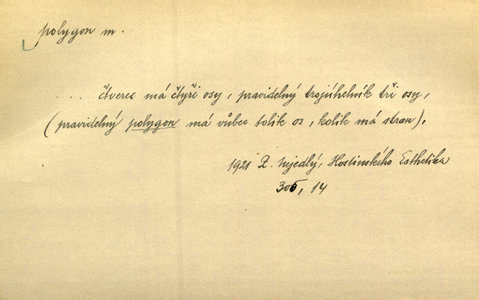 polygon m.
.... čtverec má čtyři osy, pravidelný trojúhelník tři osy,
(pravidelný polygon má vůbec tolik os, kolik má stran).
1921 Z. Nejedlý, Hostinského Esthetika
305, 14